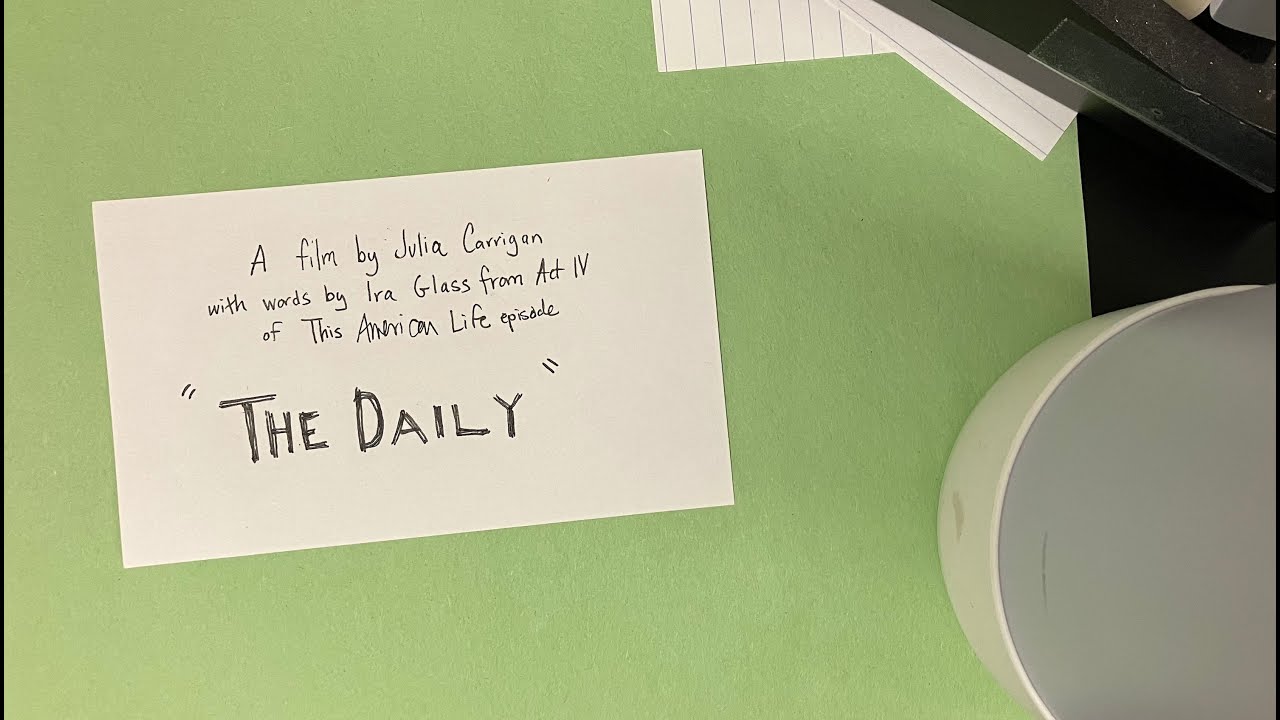 A film by Julia Carrigan
with words by Ira Glass from Act IV
of This American Life episode
"THE DAILY"